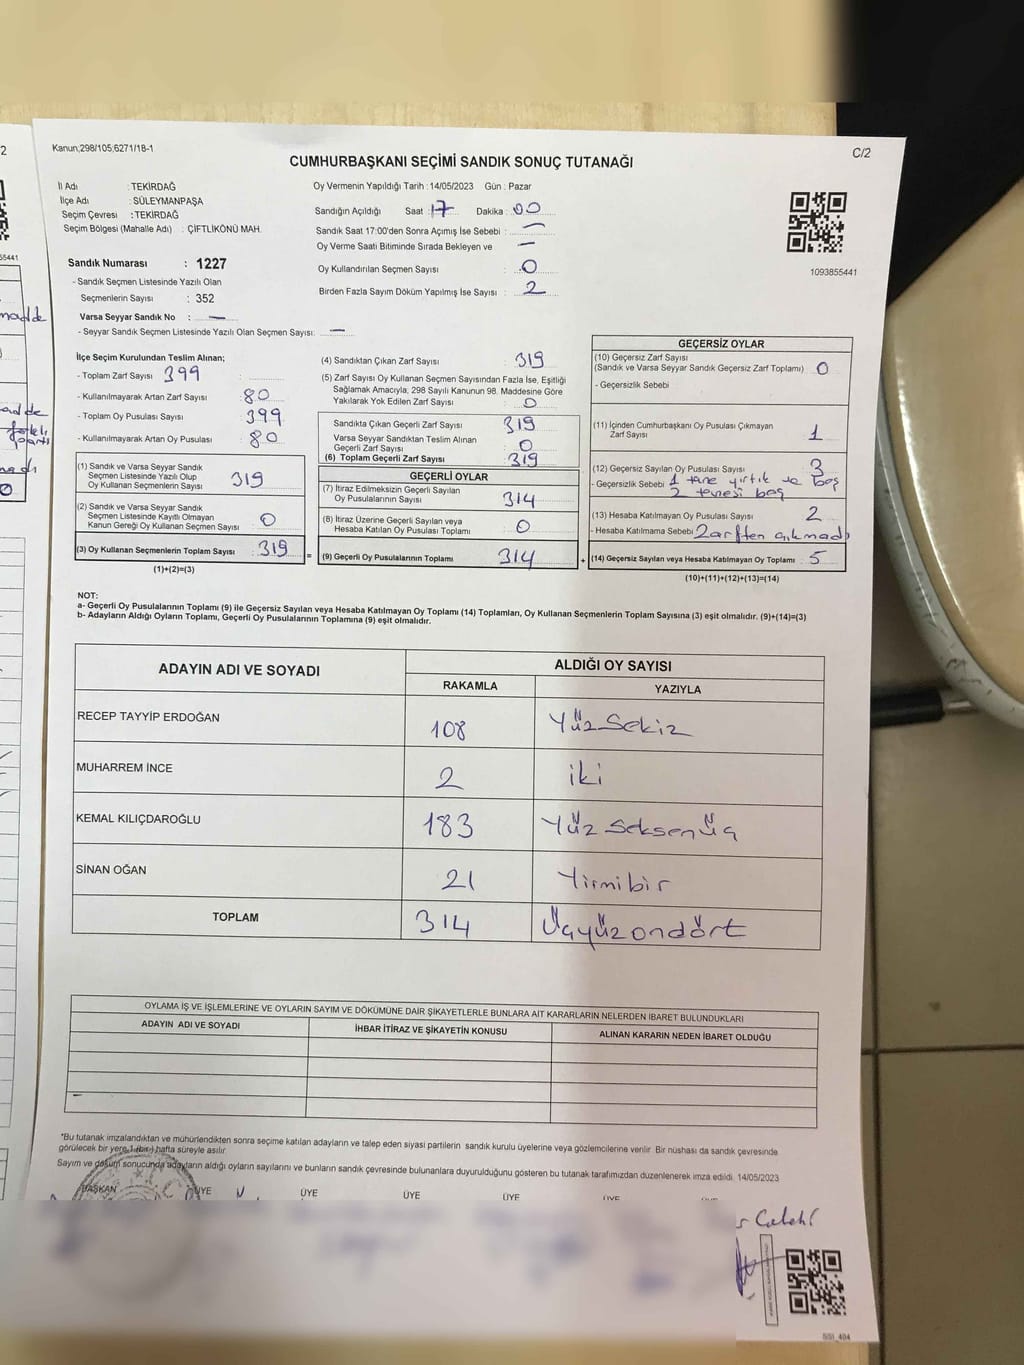 Kanun;298/105;6271/18-1
C/2
CUMHURBAŞKANI SEÇİMİ SANDIK SONUÇ TUTANAĞI
İl Adı : TEKİRDAĞ
İlçe Adı : SÜLEYMANPAŞA
Seçim Çevresi : TEKİRDAĞ
Seçim Bölgesi (Mahalle Adı) : ÇİFTLİKÖNÜ MAH.
Oy Vermenin Yapıldığı Tarih : 14/05/2023 Gün : Pazar
Sandığın Açıldığı Saat : 17 Dakika : 00
Sandık Saat 17:00'den Sonra Açımış İse Sebebi : —
Oy Verme Saati Bitiminde Sırada Bekleyen ve —
Oy Kullandırılan Seçmen Sayısı : 0
Birden Fazla Sayım Döküm Yapılmış İse Sayısı : 2
1093855441
Sandık Numarası : 1227
- Sandık Seçmen Listesinde Yazılı Olan
Seçmenlerin Sayısı : 352
Varsa Seyyar Sandık No : —
- Seyyar Sandık Seçmen Listesinde Yazılı Olan Seçmen Sayısı: —
İlçe Seçim Kurulundan Teslim Alınan;
- Toplam Zarf Sayısı 399
- Kullanılmayarak Artan Zarf Sayısı 80
- Toplam Oy Pusulası Sayısı 399
- Kullanılmayarak Artan Oy Pusulası 80
(1) Sandık ve Varsa Seyyar Sandık
Seçmen Listesinde Yazılı Olup
Oy Kullanan Seçmenlerin Sayısı 319
(2) Sandık ve Varsa Seyyar Sandık
Seçmen Listesinde Kayıtlı Olmayan
Kanun Gereği Oy Kullanan Seçmen Sayısı 0
(3) Oy Kullanan Seçmenlerin Toplam Sayısı 319
(1)+(2)=(3)
(4) Sandıktan Çıkan Zarf Sayısı 319
(5) Zarf Sayısı Oy Kullanan Seçmen Sayısından Fazla İse, Eşitliği
Sağlamak Amacıyla; 298 Sayılı Kanunun 98. Maddesine Göre
Yakılarak Yok Edilen Zarf Sayısı 0
Sandıkta Çıkan Geçerli Zarf Sayısı 319
Varsa Seyyar Sandıktan Teslim Alınan
Geçerli Zarf Sayısı 0
(6) Toplam Geçerli Zarf Sayısı 319
GEÇERLİ OYLAR
(7) İtiraz Edilmeksizin Geçerli Sayılan
Oy Pusulalarının Sayısı 314
(8) İtiraz Üzerine Geçerli Sayılan veya
Hesaba Katılan Oy Pusulası Toplamı 0
= (9) Geçerli Oy Pusulalarının Toplamı 314
GEÇERSİZ OYLAR
(10) Geçersiz Zarf Sayısı
(Sandık ve Varsa Seyyar Sandık Geçersiz Zarf Toplamı) 0
- Geçersizlik Sebebi
(11) İçinden Cumhurbaşkanı Oy Pusulası Çıkmayan
Zarf Sayısı 1
(12) Geçersiz Sayılan Oy Pusulası Sayısı 3
- Geçersizlik Sebebi 1 tane yırtık ve boş
2 tenesi boş
(13) Hesaba Katılmayan Oy Pusulası Sayısı 2
- Hesaba Katılmama Sebebi Zarften çıkmadı
+ (14) Geçersiz Sayılan veya Hesaba Katılmayan Oy Toplamı 5
(10)+(11)+(12)+(13)=(14)
NOT:
a- Geçerli Oy Pusulalarının Toplamı (9) ile Geçersiz Sayılan veya Hesaba Katılmayan Oy Toplamı (14) Toplamları, Oy Kullanan Seçmenlerin Toplam Sayısına (3) eşit olmalıdır. (9)+(14)=(3)
b- Adayların Aldığı Oyların Toplamı, Geçerli Oy Pusulalarının Toplamına (9) eşit olmalıdır.
ADAYIN ADI VE SOYADI
ALDIĞI OY SAYISI
RAKAMLA YAZIYLA
RECEP TAYYİP ERDOĞAN 108 Yüz Sekiz
MUHARREM İNCE 2 iki
KEMAL KILIÇDAROĞLU 183 Yüz Seksen üç
SİNAN OĞAN 21 Yirmibir
TOPLAM 314 Üçyüz ondört
OYLAMA İŞ VE İŞLEMLERİNE VE OYLARIN SAYIM VE DÖKÜMÜNE DAİR ŞİKAYETLERLE BUNLARA AİT KARARLARIN NELERDEN İBARET BULUNDUKLARI
ADAYIN ADI VE SOYADI İHBAR İTİRAZ VE ŞİKAYETİN KONUSU ALINAN KARARIN NEDEN İBARET OLDUĞU
*Bu tutanak imzalandıktan ve mühürlendikten sonra seçime katılan adayların ve talep eden siyasi partilerin sandık kurulu üyelerine veya gözlemcilerine verilir. Bir nüshası da sandık çevresinde
görülecek bir yere 1 (bir) hafta süreyle asılır.
Sayım ve döküm sonucunda adayların aldığı oyların sayılarını ve bunların sandık çevresinde bulunanlara duyurulduğunu gösteren bu tutanak tarafımızdan düzenlenerek imza edildi. 14/05/2023
BAŞKAN ÜYE ÜYE ÜYE ÜYE ÜYE